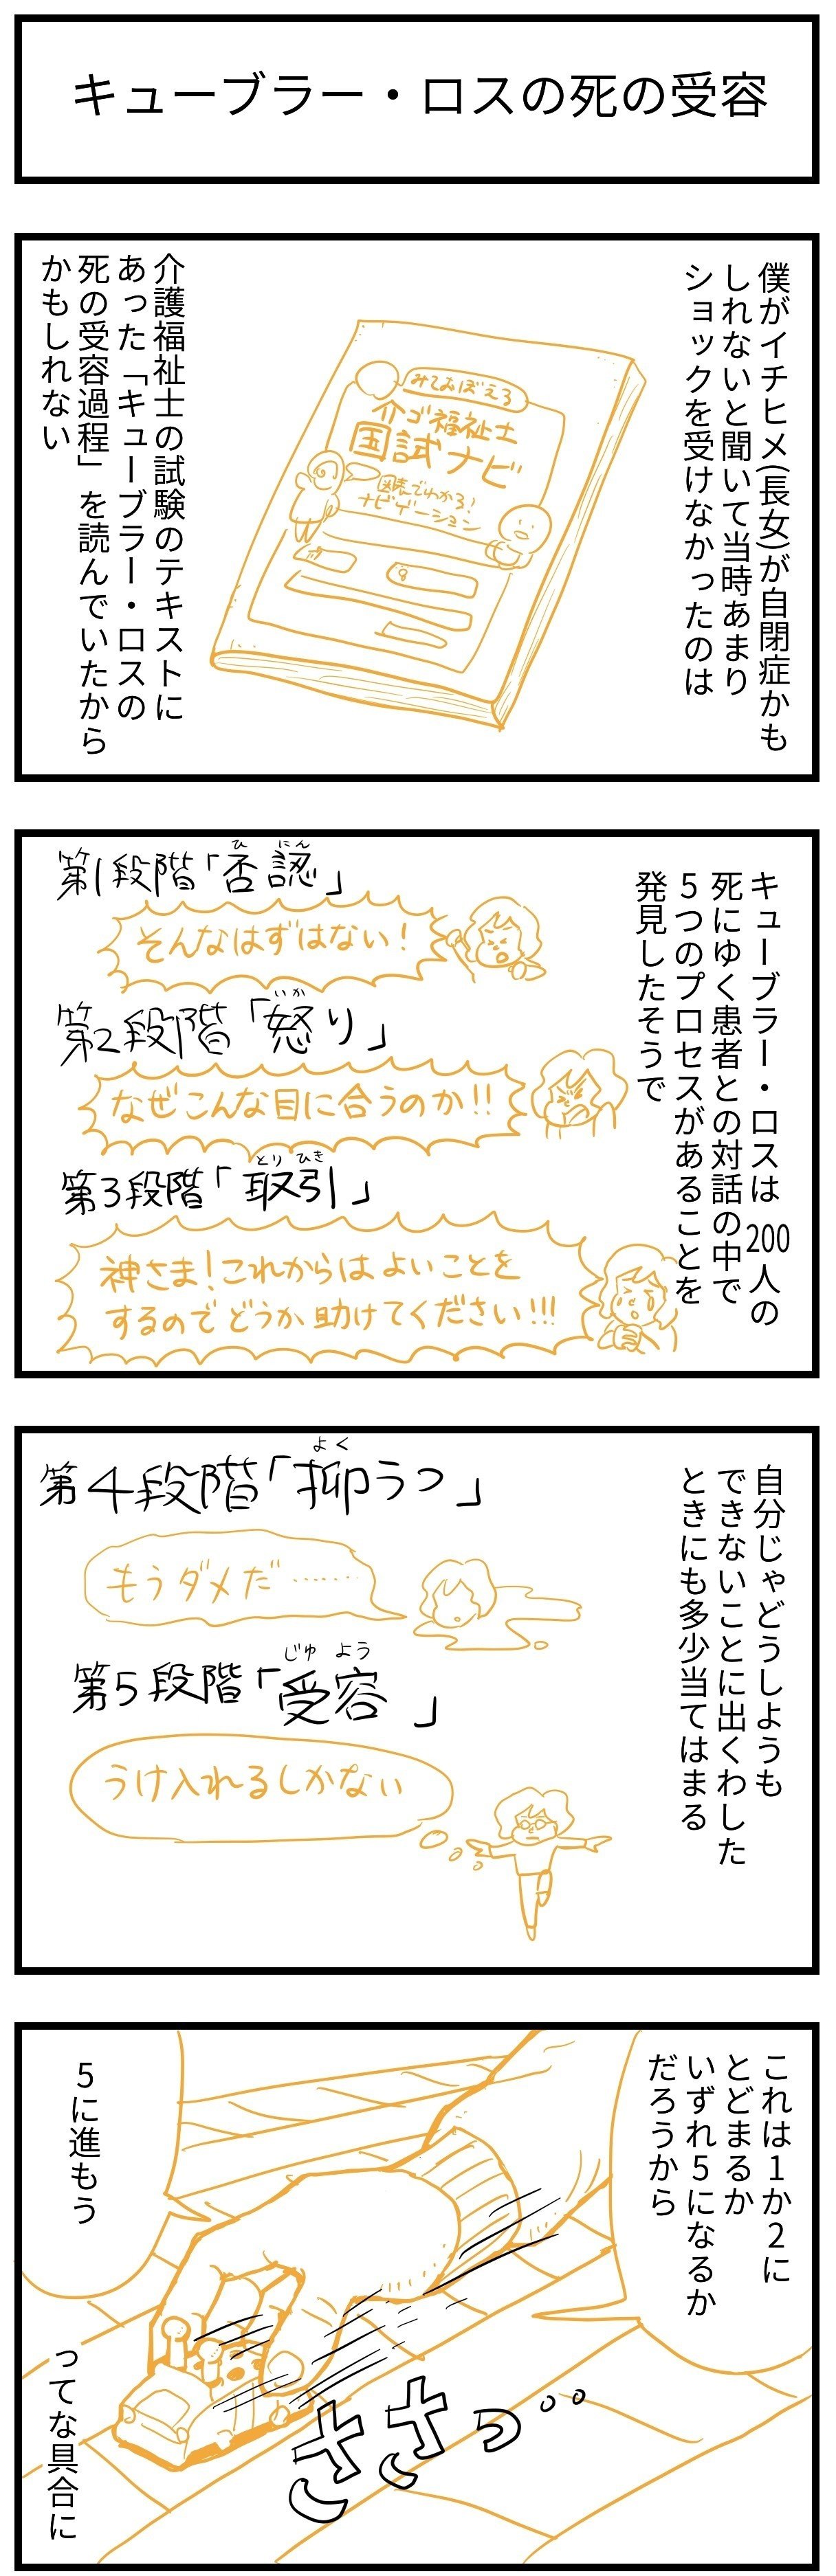 キューブラー・ロスの死の受容
僕がイチヒメ(長女)が自閉症かも
しれないと聞いて当時あまり
ショックを受けなかったのは
みておぼえる
介ゴ福祉士
国試ナビ
図表でわかる!
ナビゲーション
介護福祉士の試験のテキストに
あった「キューブラー・ロスの
死の受容過程」を読んでいたから
かもしれない
キューブラー・ロスは200人の
死にゆく患者との対話の中で
5つのプロセスがあることを
発見したそうで
第1段階「否認」
ひにん
そんなはずはない!
第2段階「怒り」
いか
なぜこんな目に合うのか!!
第3段階「取引」
とりひき
神さま!これからはよいことを
するのでどうか助けてください!!!
自分じゃどうしようも
できないことに出くわした
ときにも多少当てはまる
第4段階「抑うつ」
よく
もうダメだ……
第5段階「受容」
じゅよう
うけ入れるしかない
これは1か2に
とどまるか
いずれ5になるか
だろうから
5に進もう
ささっ
ってな具合に